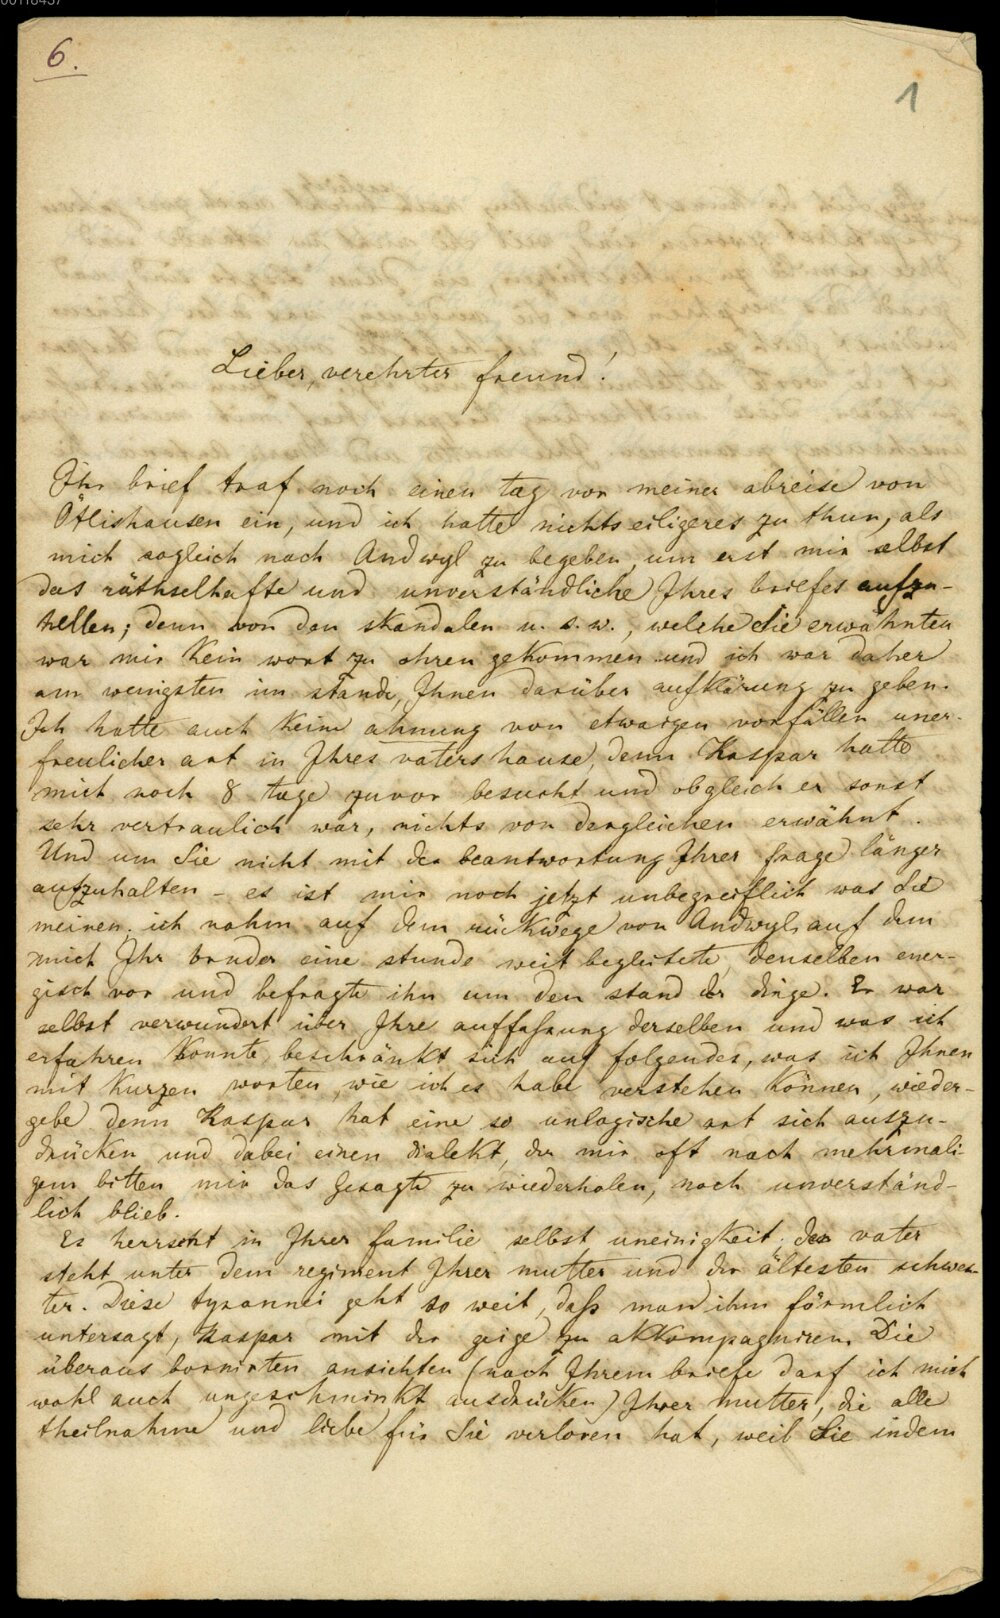 00118437
6.
1
Lieber, verehrter freund!
Ihr brief traf noch einen tag vor meiner abreise von
Ötlishausen ein, und ich hatte nichts eiligeres zu thun, als
mich sogleich nach Andwyl zu begeben, um erst mir selbst
das räthselhafte und unverständliche Ihres briefes aufzu-
hellen; denn von den skandalen u. s. w., welche Sie erwähnten
war mir kein wort zu ohren gekommen und ich war daher
am wenigsten im stande, Ihnen darüber aufklärung zu geben.
Ich hatte auch keine ahnung von etwaigen vorfällen uner-
freulicher art in Ihres vaters hause, denn Kaspar hatte
mich noch 8 tage zuvor besucht und obgleich er sonst
sehr vertraulich war, nichts von dergleichen erwähnt.
Und um Sie nicht mit der beantwortung Ihrer frage länger
aufzuhalten – es ist mir noch jetzt unbegreiflich was Sie
meinen. ich nahm auf dem rückwege von Andwyl, auf dem
mich Ihr bruder eine stunde weit begleitete, denselben ener-
gisch vor und befragte ihn um den stand der dinge. Er war
selbst verwundert über Ihre auffaßung derselben und was ich
erfahren konnte, beschränkt sich auf folgendes, was ich Ihnen
mit kurzen worten, wie ich es habe verstehen können, wieder-
gebe denn Kaspar hat eine so unlogische art sich auszu-
drücken und dabei einen dialekt, der mir oft nach mehrmali-
gem bitten mir das Gesagte zu wiederholen, noch unverständ-
lich blieb.
Es herrscht in Ihrer familie selbst uneinigkeit. der vater
steht unter dem regiment Ihrer mutter und der ältesten schwes-
ter. Diese tyrannei geht so weit, daß man ihm förmlich
untersagt, Kaspar mit der geige zu akkompagniren. Die
überaus bornirten ansichten (nach Ihrem briefe darf ich mich
wohl auch ungeschminkt ausdrücken) Ihrer mutter, die alle
theilnahme und liebe für Sie verloren hat, weil Sie indem